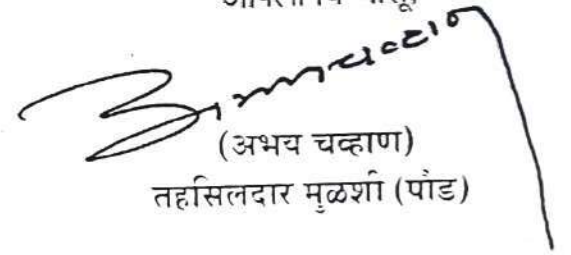 (अभय चव्हाण)
तहसिलदार मुळशी (पौड)